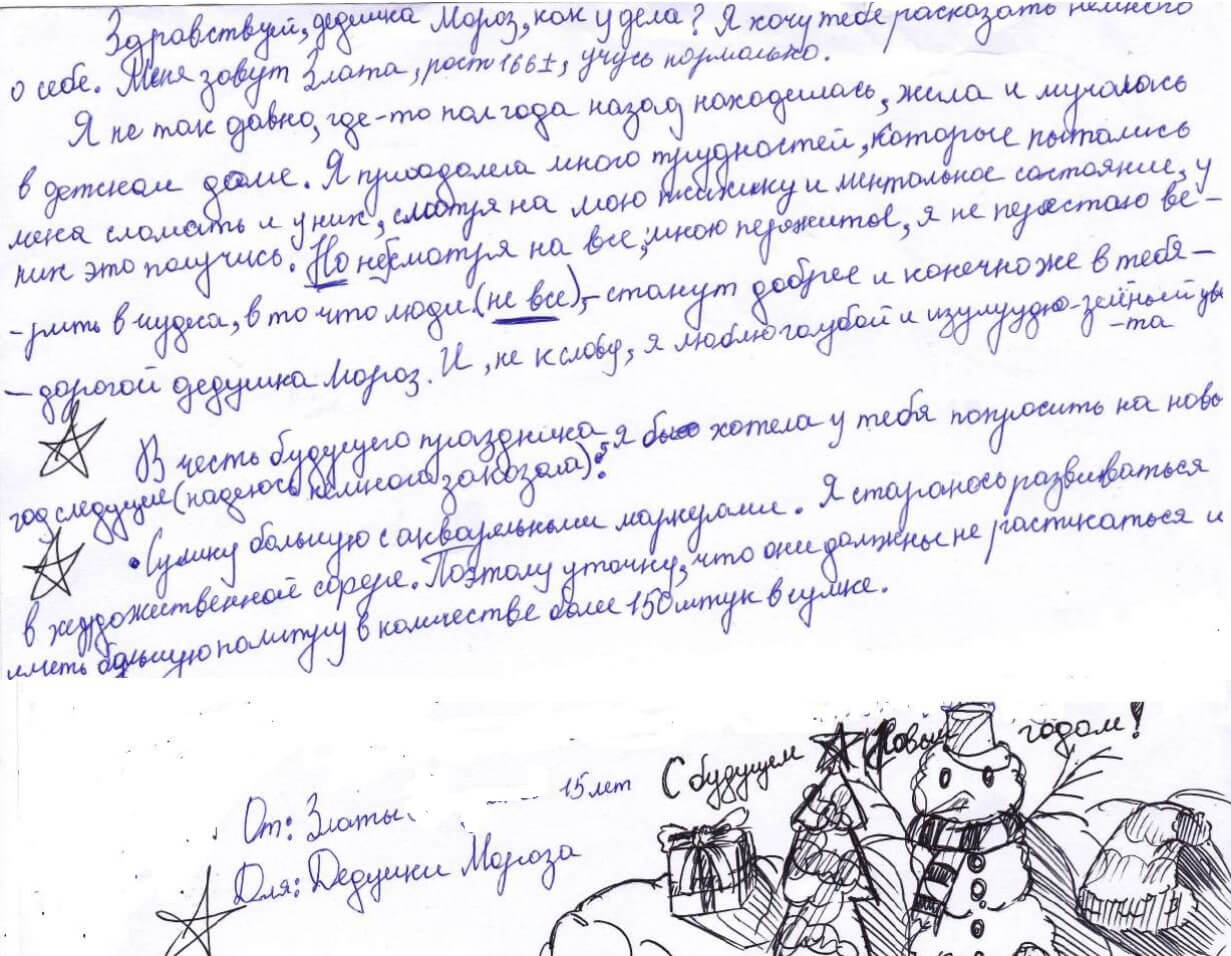 Здравствуй, дедушка Мороз, как у дела? Я хочу тебе расказать немного
о себе. Меня зовут Злата, рост 166±, учусь нормально.
Я не так давно, где-то пол года назад находилась, жила и мучалась
в детском доме. Я приодолела много трудностей, которые пытались
меня сломать и у них, смотря на мою психику и ментальное состояние, у
них это получись. Но несмотря на все, мною пережитое, я не перестаю ве-
-рить в чудеса, в то что люди (не все),- станут добрее и конечно же в тебя-
- дорогой дедушка Мороз. И, не к слову, я люблю голубой и изулрудно-зелёный цве
-та
В честь будущего праздника я бы хотела у тебя попросить на новы
год следущие (надеюсь немного заказала):
• Сумку большую с акварельными маркерами. Я стараюсь развиваться
в художественной сфере. Поэтому уточну, что они должны не растикаться и
иметь большую политру в количестве более 150 штук в сумке.
С будущем Новым годом!
От: Златы, 15 лет
Для: Дедушки Мороза